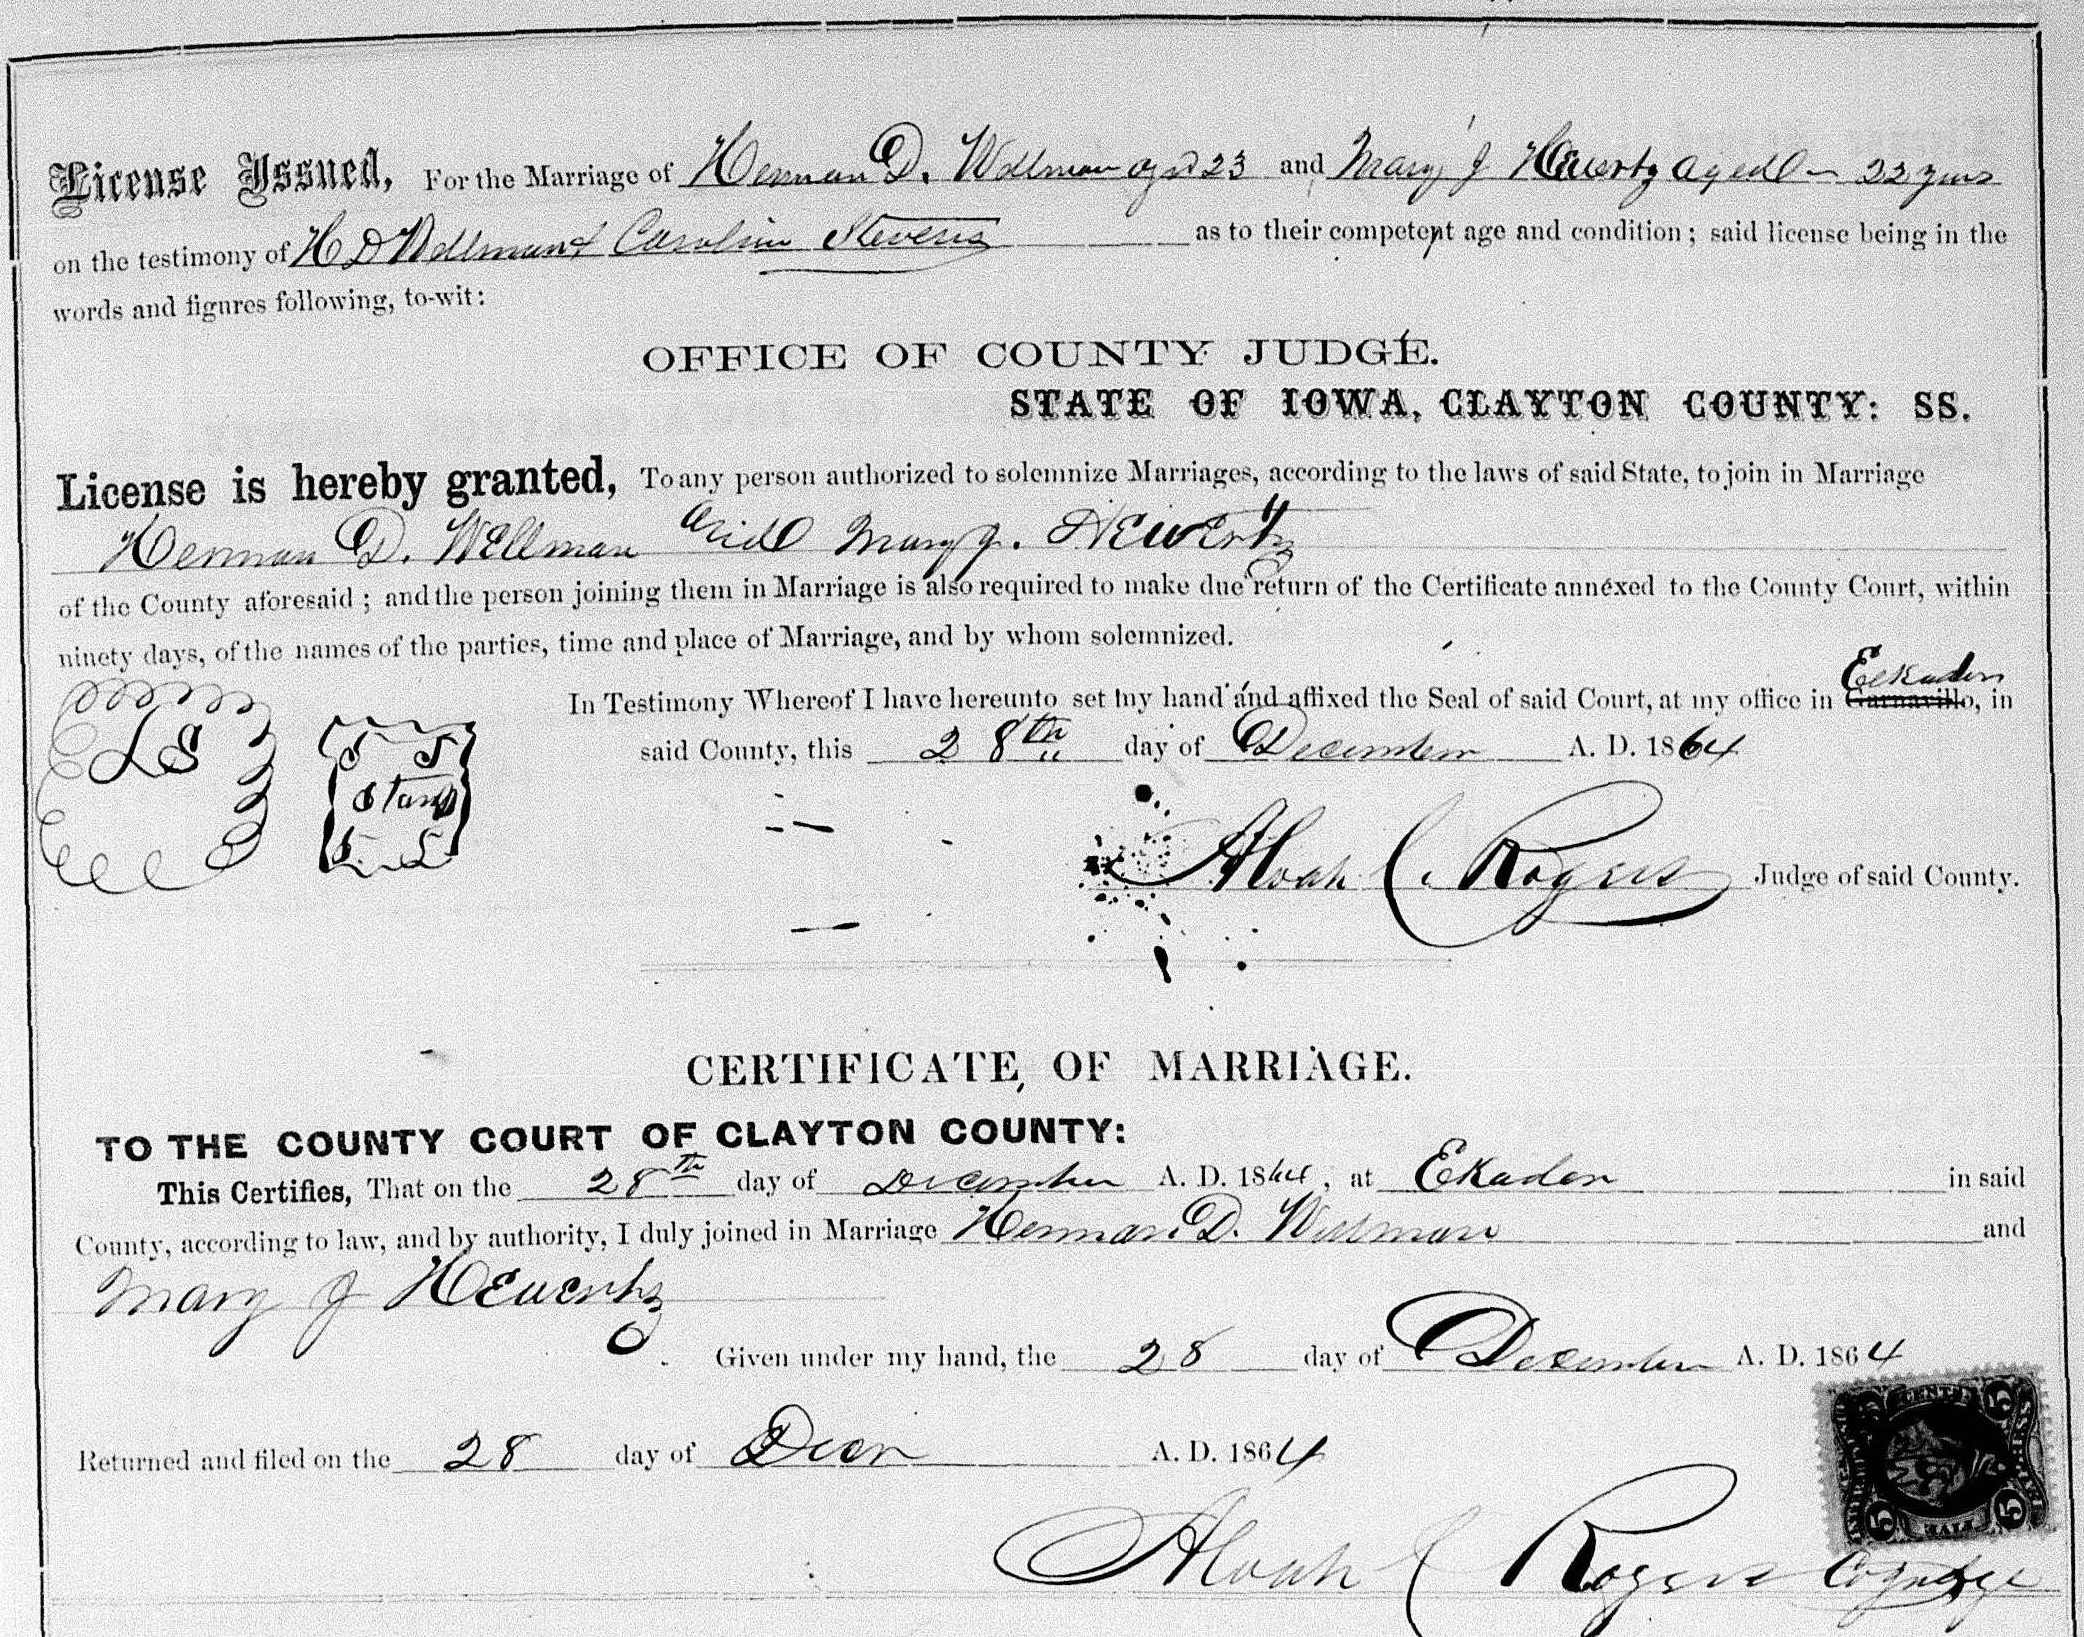 License Issued, For the Marriage of Herman D. Wellman aged 23 and Mary J Heuertz aged 22 years
on the testimony of H D Wellman & Caroline Stevens as to their competent age and condition; said license being in the
words and figures following, to-wit:
OFFICE OF COUNTY JUDGE.
STATE OF IOWA, CLAYTON COUNTY: SS.
License is hereby granted, To any person authorized to solemnize Marriages, according to the laws of said State, to join in Marriage
Herman D. Wellman and Mary J. Heuertz
of the County aforesaid; and the person joining them in Marriage is also required to make due return of the Certificate annexed to the County Court, within
ninety days, of the names of the parties, time and place of Marriage, and by whom solemnized.
Elkader
In Testimony Whereof I have hereunto set my hand and affixed the Seal of said Court, at my office in Garnavillo, in
said County, this 28th day of December A. D. 1864
LS
5 5
Stamp
5 5
Noah C. Rogers Judge of said County.
CERTIFICATE OF MARRIAGE.
TO THE COUNTY COURT OF CLAYTON COUNTY:
This Certifies, That on the 28th day of December A. D. 1864, at Elkader in said
County, according to law, and by authority, I duly joined in Marriage Herman D. Wellman and
Mary J Heuertz
Given under my hand, the 28 day of December A. D. 1864
Returned and filed on the 28 day of Decr A. D. 1864
5 CENTS 5
INTER. REV.
5 FIVE 5
Noah C Rogers Co Judge